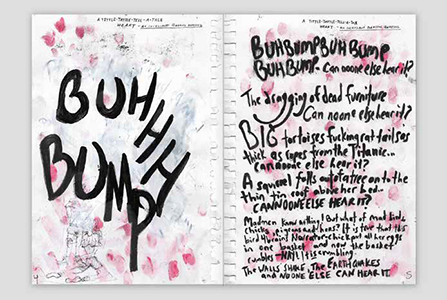 A TITTLE-TATTLE-TELL-A-TALE
HEART
BUHHH
BUMP
A TITTLE-TATTLE-TELL-A-TALE
HEART
BUHBUMPBUHBUMP
BUHBUMP. Can noone else hear it?
The dragging of dead furniture
Can no one else hear it?
BIG tortoises fucking rat tails as
thick as ropes from the Titanic..
can noone else hear it?
A squirrel falls out a tree on to the
thin tin roof above her bed..
CANNOONE ELSE HEAR IT?
Madmen know nothing! But what of mad
chicks, and hens? It is true that this
bird Narrator-chick put all her eggs
in one basket and now the basket
crumbles - NAY! It is crumbling.
THE WALLS SHAKE, THE EARTHQUAKES
and NOONE ELSE CAN HEAR IT.
5